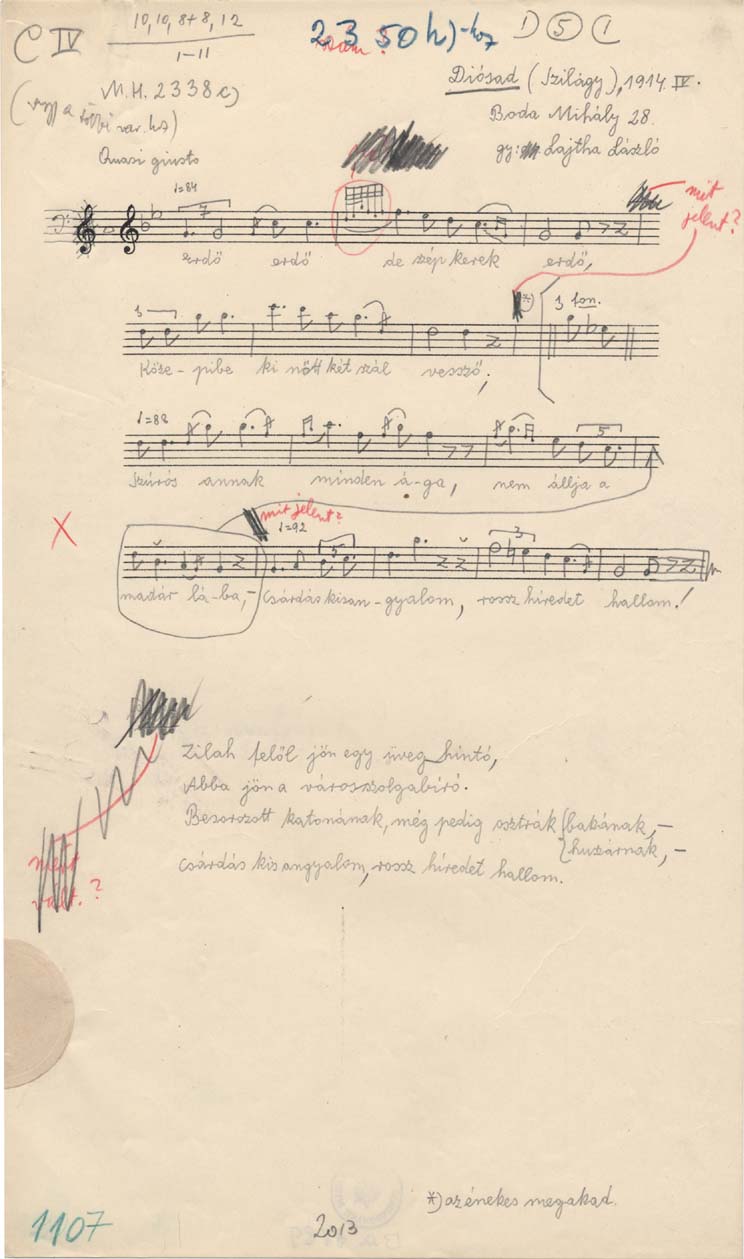 C IV
10, 10, 8+8, 12
1–11
2350h)-hoz
D 5 C
M.H. 2338c)
(vagy a többi var. hz)
Diósad (Szilágy), 1914. IV.
Boda Mihály 28.
gy: Lajtha László
Quasi giusto
♩=84
7
mit jelent?
erdő erdő de szép kerek erdő,
3
*)
3 fon.
Köze-pibe ki nőtt két szál vessző;
♩=88
5
Szúrós annak minden á-ga, nem állja a
X
mit jelent?
♩=92
5
3
madár lá-ba,– Csárdás kisan-gyalom, rossz híredet hallom!
Zilah felől jön egy üveg hintó,
Abba jön a városszolgabíró.
Besorozott katonának, még pedig osztrák {bakának,–
{huszárnak,–
Csárdás kisangyalom, rossz híredet hallom.
*) az énekes megakad.
1107
2013